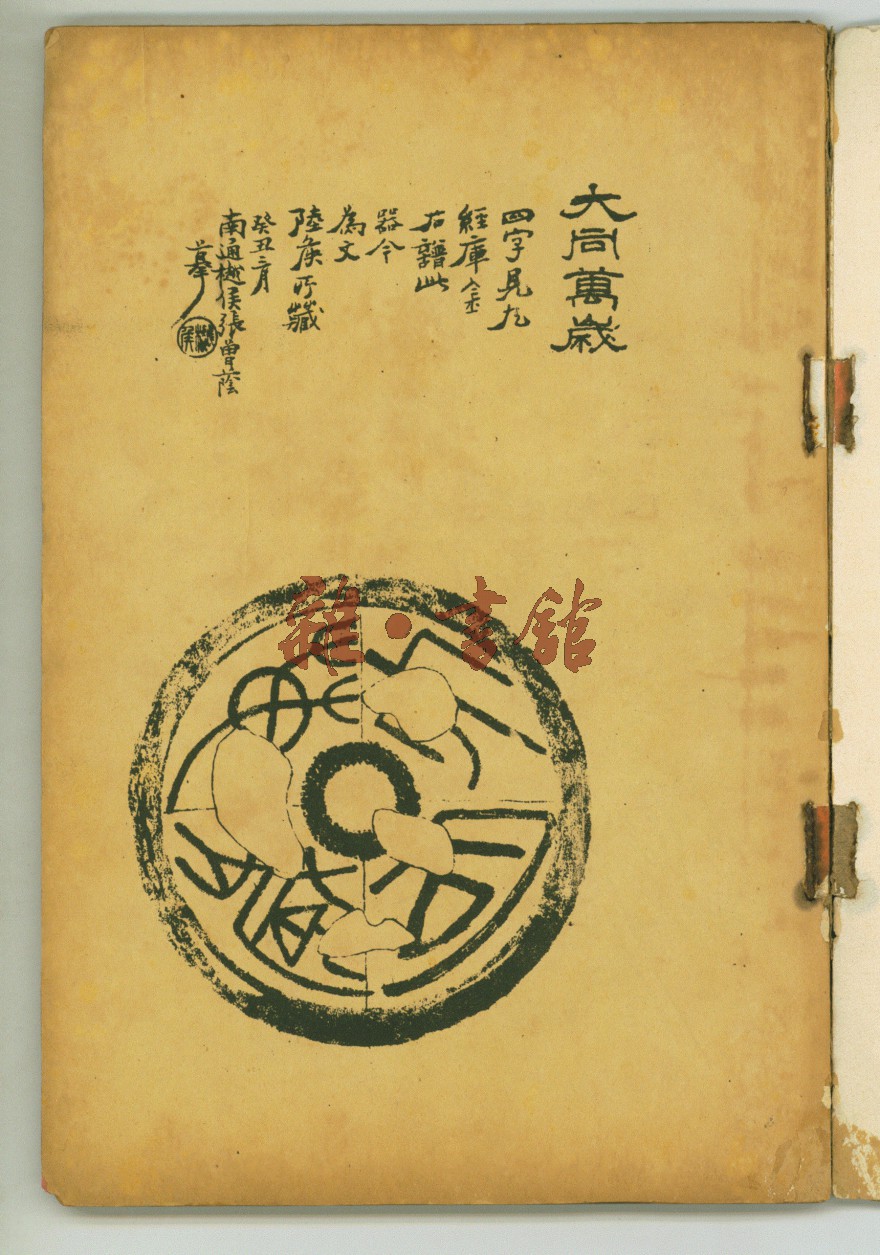 大同萬歲
四字見九
經庫金
石譜此
器今
為文
陸矦所藏
癸丑二月
南通樾侯張曾蔭
摹
樾侯
大同萬歲
雜·書館